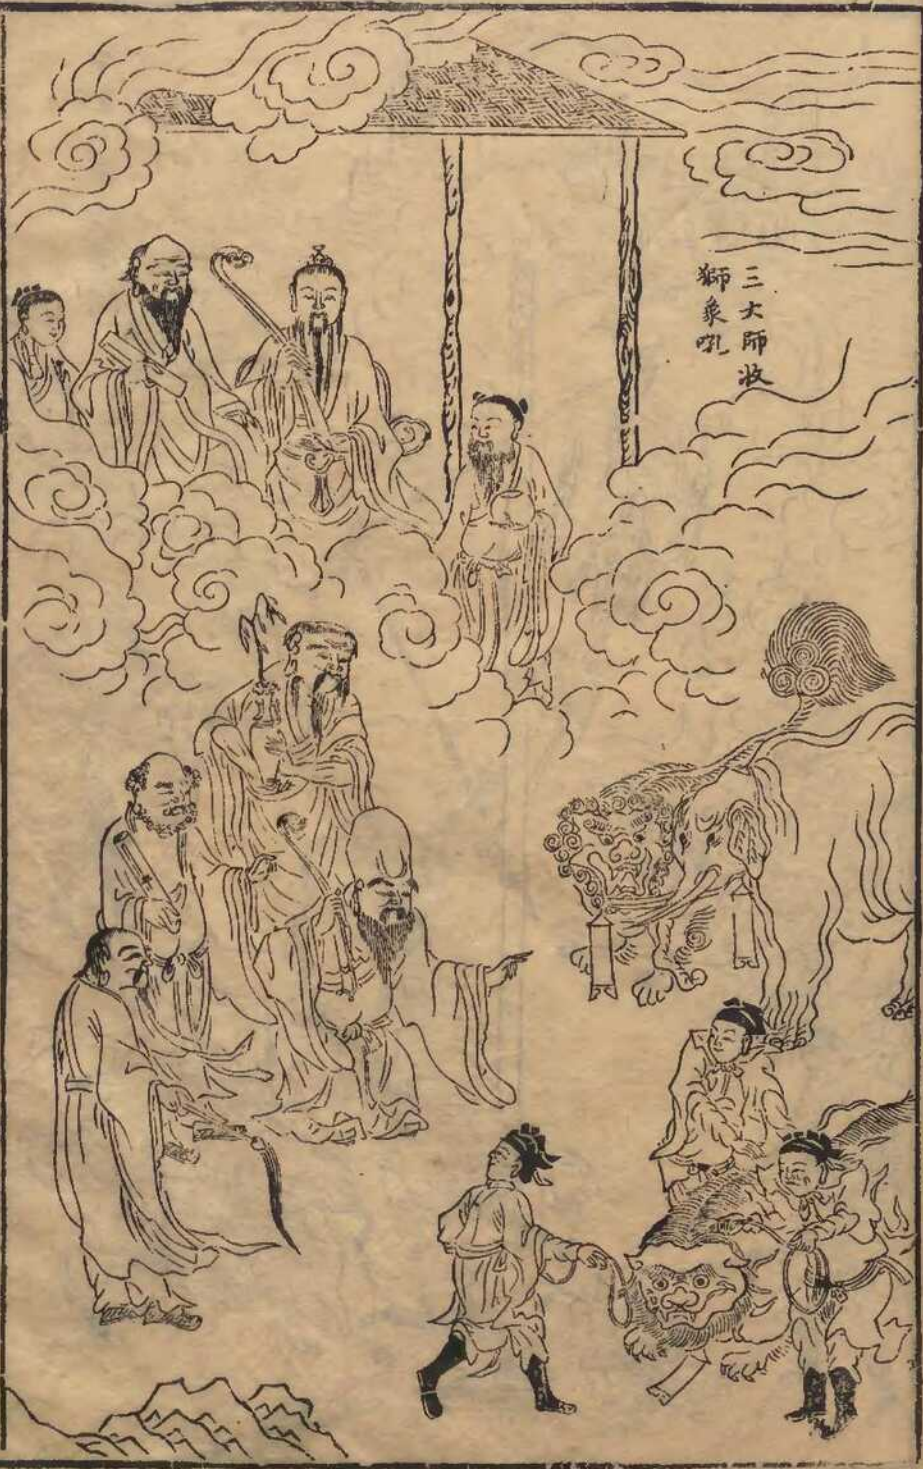 三大師收
獅象吼